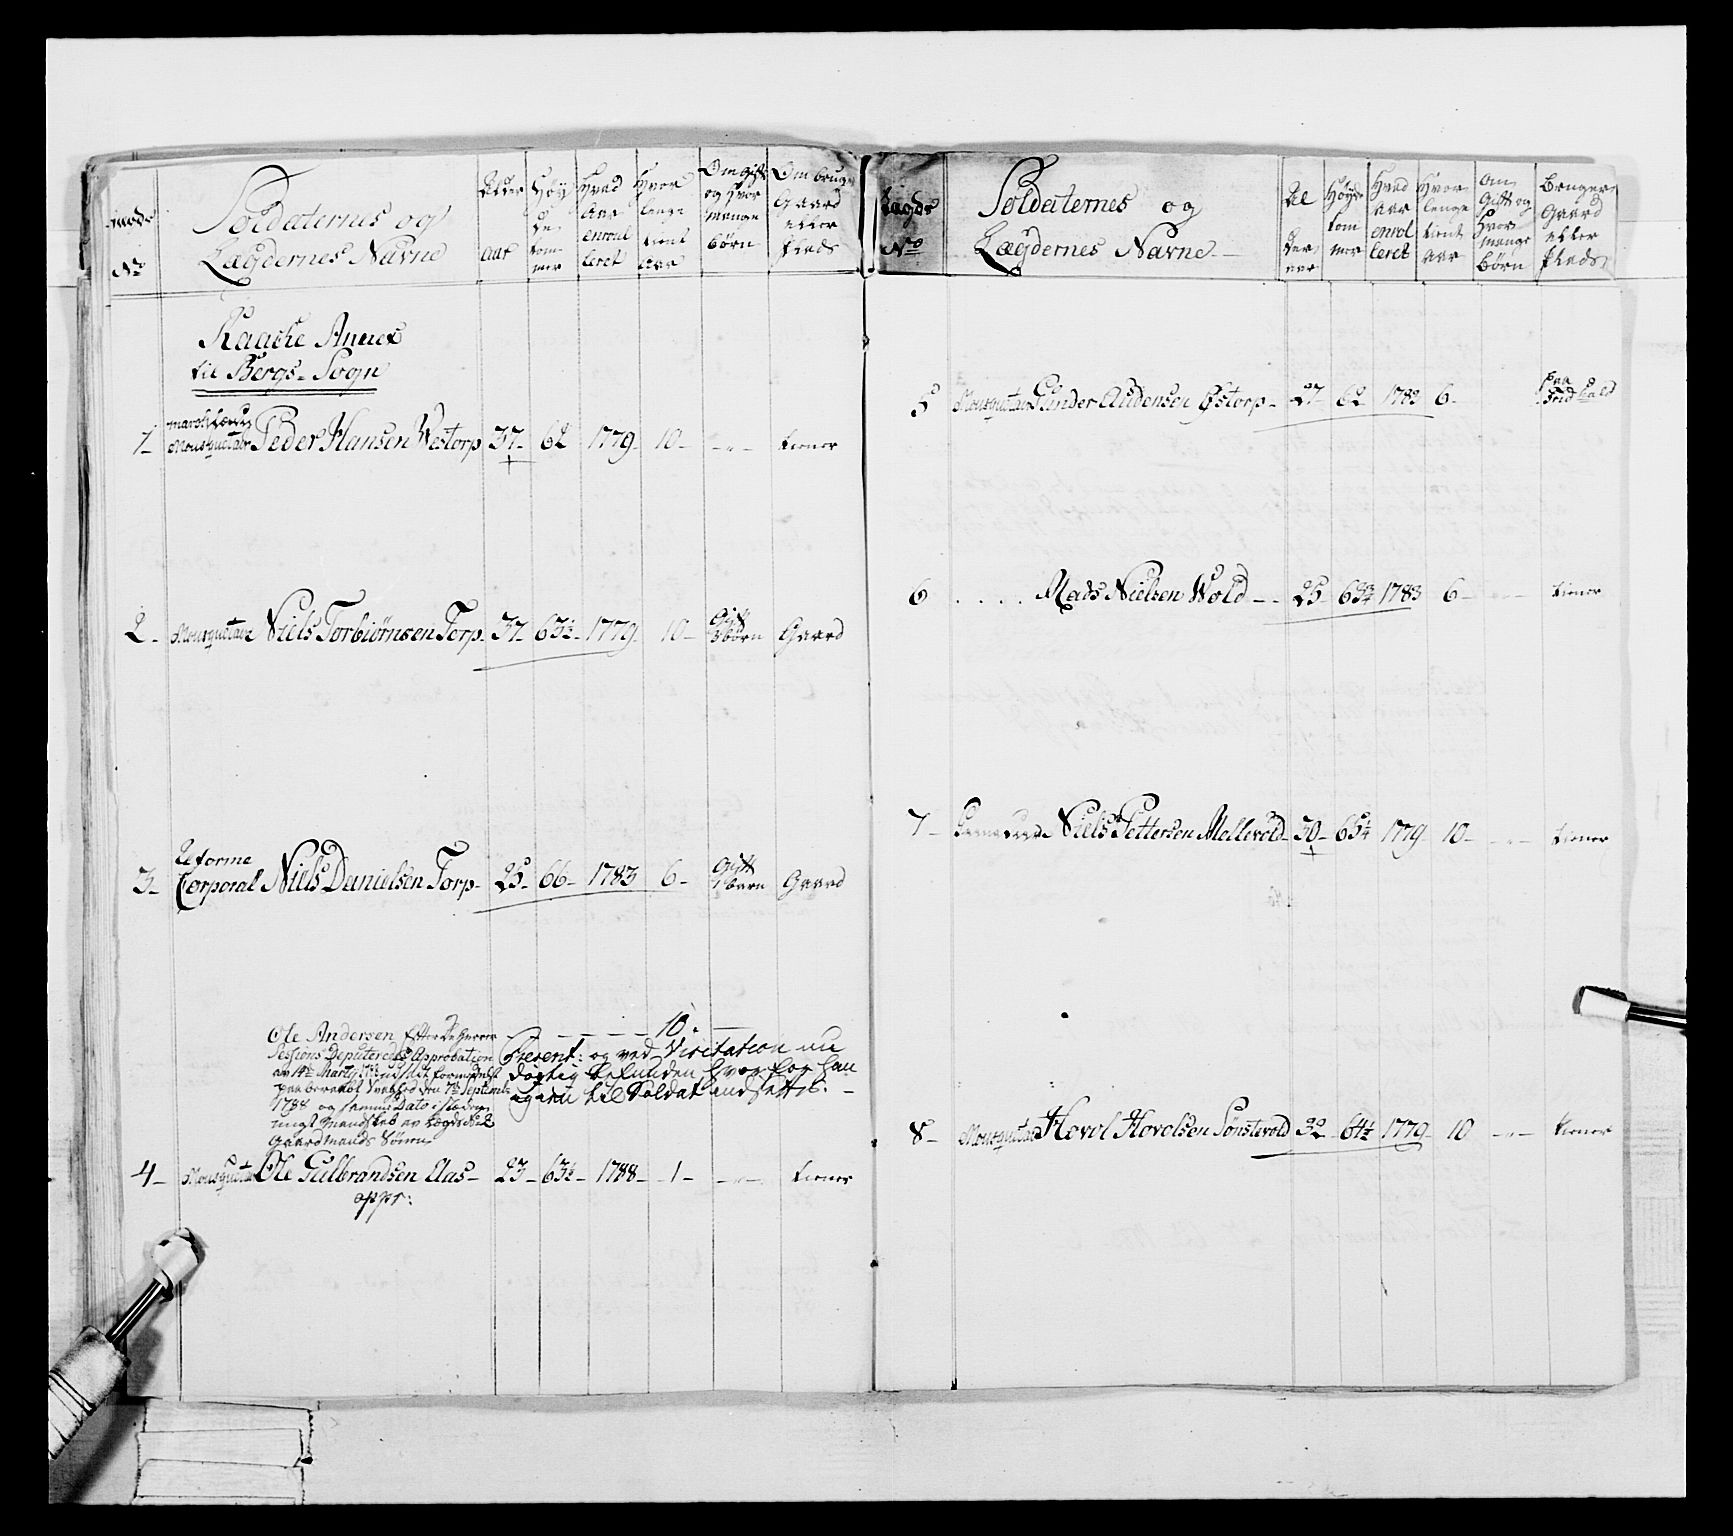 No
Soldaternes og
Lægdernes Navne
Alder
aar
Høy
de
tom
mer
Hvad
Aar
enroul
leret
Hvor
lenge
tient
Aar
Om gift
og hvor
mange
børn
Om bruger
Gaard
eller
Plads
Raade Annex
til Bergs Sogn
1 Mousqueteer Peder Hansen Westorp 37 62 1779 10 - " - tiener
2 Mousqueteer Niels Torbiørnsen Torp 37 63½ 1779 10 Gift 3 børn Gaard
3 Reforme Corporal Niels Danielsen Torp 25 66 1783 6 Gift 1 barn Gaard
Ole Andersen Efter de Herrer
Sessions Deputeredes Approbation
paaberaabt Svaghed den 7de Septembr
1788 og samme Dato
Gaardmands Sønn
10
Present: og ved Visitation nu
dygtig befunden hvorfor han
igien til Soldat indsættes.
4 Mousqueteer Ole Gulbrandsen Aas 23 63½ 1788 1 - " - tiener
appr:
Lægds
No
Soldaternes og
Lægdernes Navne
Al
der
aar
Høyde
tom
mer
Hvad
aar
enrol
leret
Hvor
lenge
tient
aar
Om
Gift og
hvor
mange
børn
Bruger
Gaard
eller
Plads
5 Mousqueteer Gunder Audensen Østorp 27 62 1783 6 paa Fridrhald
6 . . . . Mads Nielsen Wold 25 63¾ 1783 6 tiener
7 Niels Pettersen Mellevold 30 65¼ 1779 10 - " - tiener
8 Mousqueteer Hovol Hovolsen Sønstevold 32 64½ 1779 10 - " - tiener